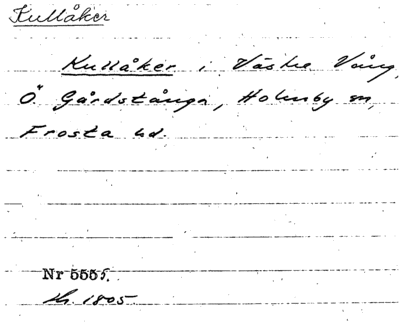 Kullåker
Kullåker i Västre Vång,
Ö. Gårdstånga, Holmby sn,
Frosta hd.
Nr 5555.
1805.